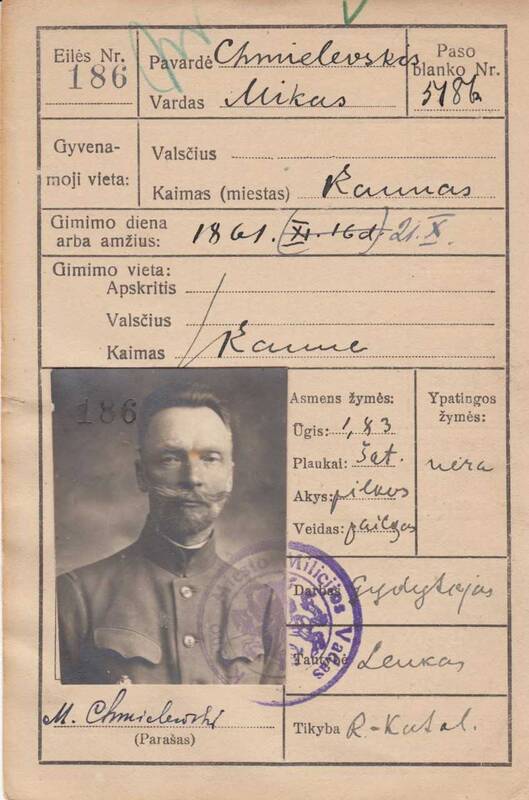 Eilės Nr.
186
Pavardė Chmielevskis
Vardas Mikas
Paso
blanko Nr.
5186
Gyvena-
moji vieta:
Valsčius
Kaimas (miestas) Kaunas
Gimimo diena
arba amžius: 1861. (XI. 16d.) 21. X.
Gimimo vieta:
Apskritis
Valsčius
Kaimas Kaune
186
Asmens žymės:
Ūgis: 1,83
Plaukai: šat.
Akys: pilkos
Veidas: pailgas
Ypatingos
žymės:
nėra
Darbas Gydytojas
Tautybė Lenkas
Tikyba R-Katal.
Miesto Milicijos Vadas
M. Chmielewski
(Parašas)